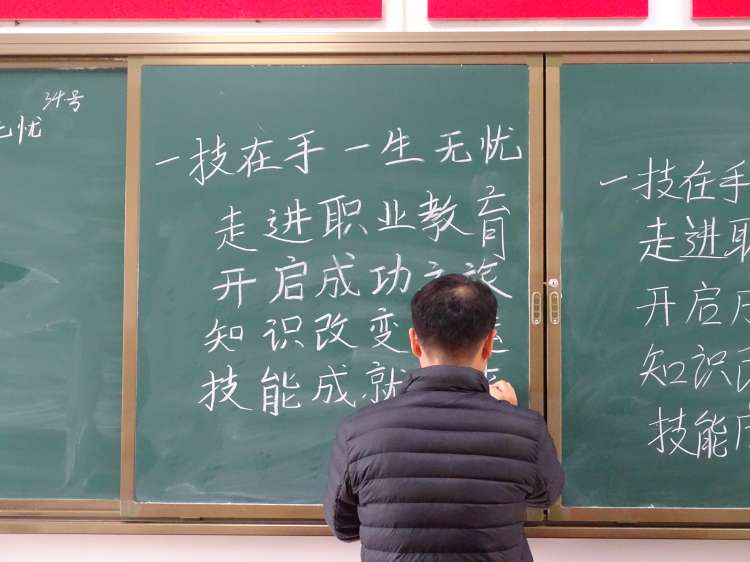 34号
无忧
一技在手 一生无忧
走进职业教育
开启成功之旅
知识改变
技能成就
一技在手
走进职
开启
知识
技能